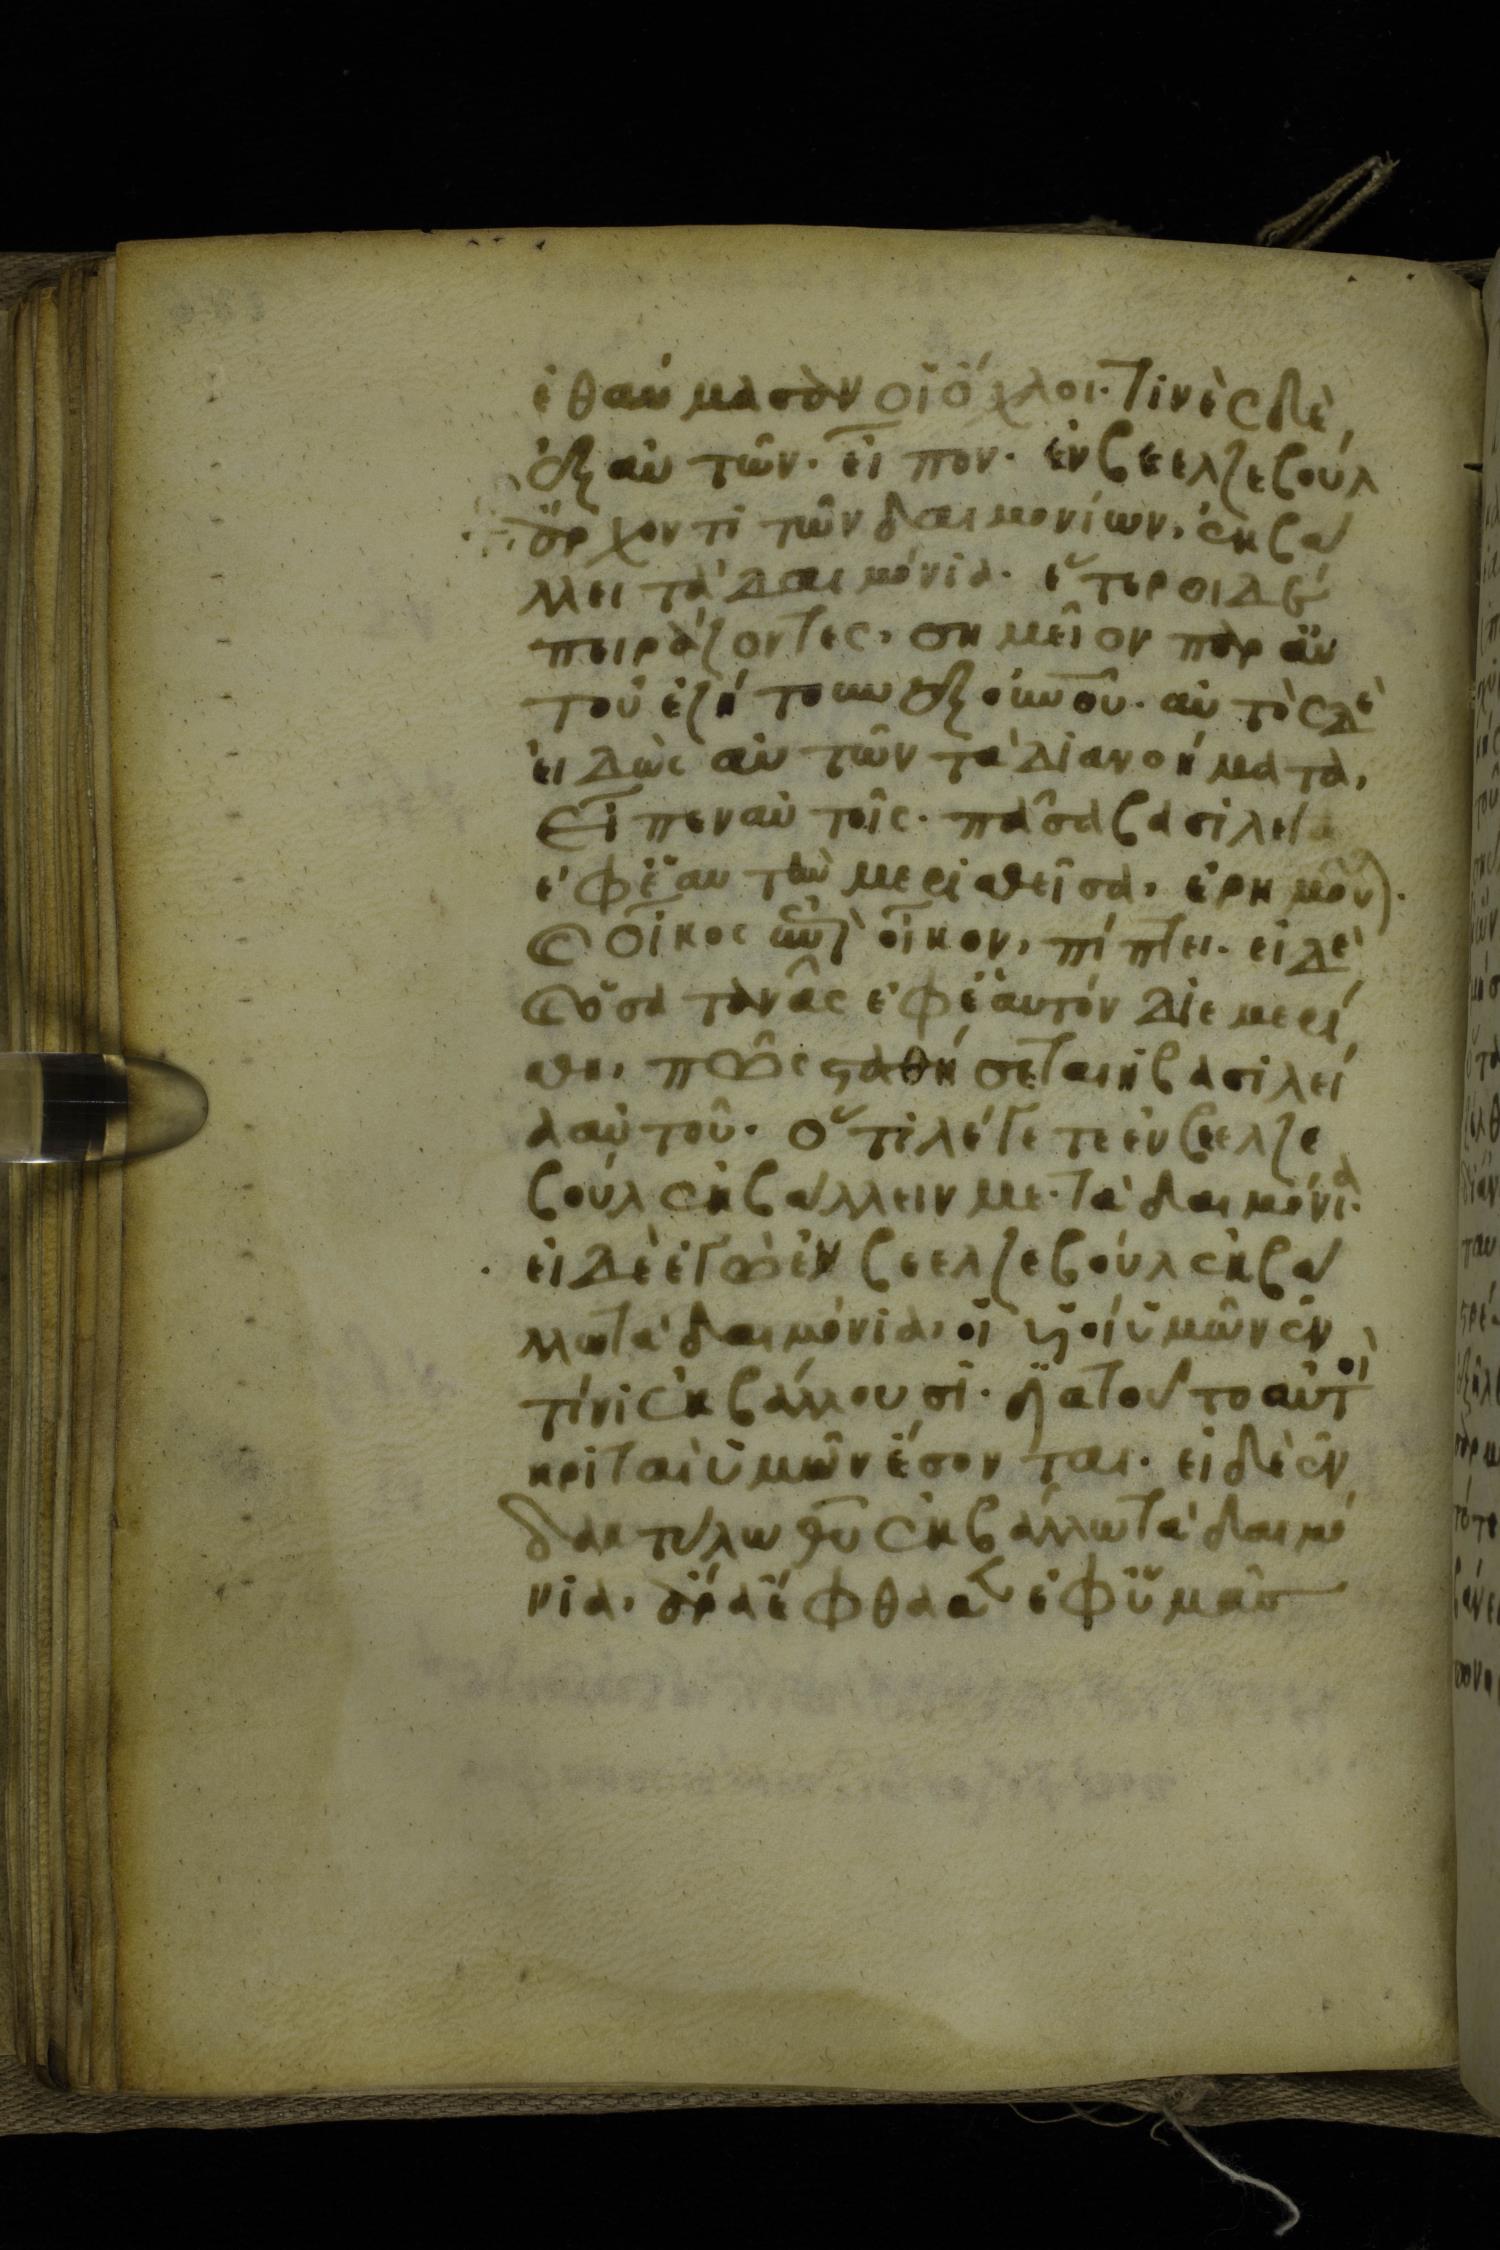 ἐθαύμασαν οἱ ὄχλοι· τινὲς δὲ
ἐξ αὐτῶν· εἶπον· ἐν βεελζεβοὺλ
ἄρχοντι τῶν δαιμονίων, ἐκβά
λλει τὰ δαιμόνια· ἕτεροι δὲ
πειράζοντες, σημεῖον παρ αὐ
τοῦ ἐζήτουν ἐξ οὐνοῦ· αὐτὸς δὲ
εἰδὼς αὐτῶν τὰ διανοήματα,
εἶπεν αὐτοῖς· πᾶσα βασιλεία
ἐφ ἑαυτὴν μερισθεῖσα, ἐρημοῦ).
οἶκος οἶκον, πίπτει· εἰ δὲ
ὁ σατανᾶς ἐφ ἑαυτὸν διεμερί
σθη, πῶς σταθήσεται ἡ βασιλεί
α αὐτοῦ· ὅτι λέγετε ἐν βεελζε
βοὺλ ἐκβάλλειν με τὰ δαιμόνια·
εἰ δὲ ἐγὼ ἐν βεελζεβοὺλ ἐκβά
λλω τὰ δαιμόνια, οἱ υἱοὶ ὑμῶν ἐν
τίνι ἐκβάλλουσι· διὰ τοῦτο αὐτοὶ
κριταὶ ὑμῶν ἔσονται· εἰ δὲ ἐν
δακτύλω θυ ἐκβάλλω τὰ δαιμό
νια, ἄρα ἔφθασεν ἐφ ὑμᾶς